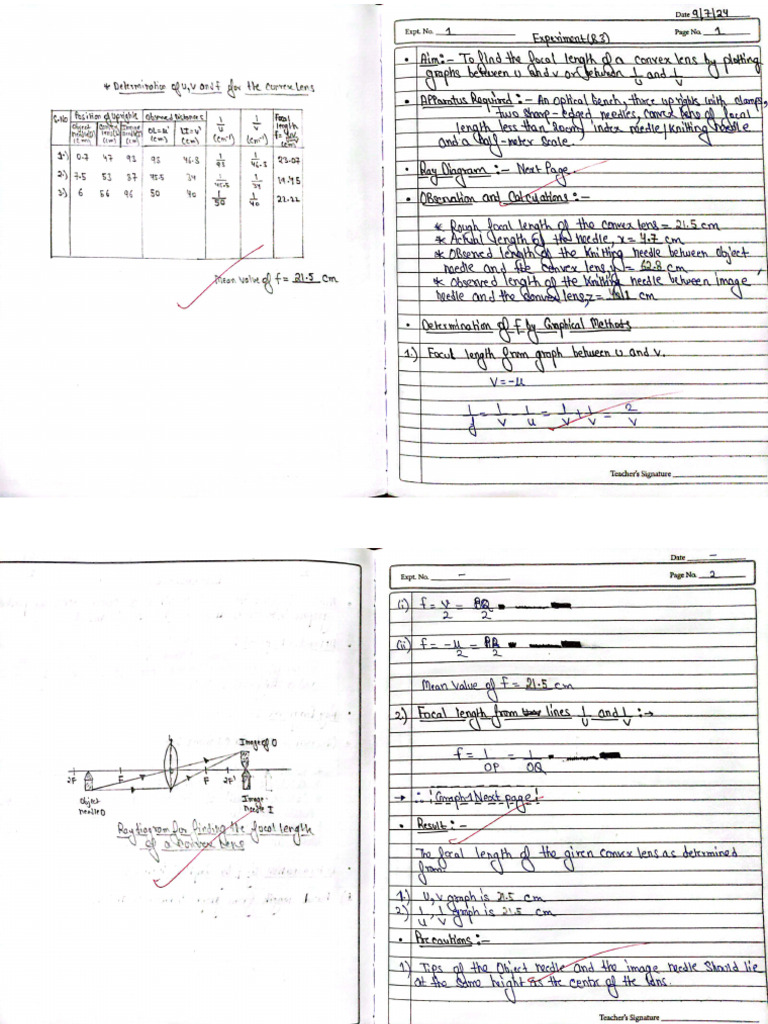 * Determination of u, v and f for the convex lens
S.No
Position of uprights
Observed Distances
1/u
1/v
Focal length
Object needle(O) (cm)
Image needle(I) (cm)
OL=u' (cm)
LI=v' (cm)
(cm⁻¹)
(cm⁻¹)
1.) 0.7 47 93 93 46.3 1/93 1/46.3 23.07
2.) 7.5 53 37 45.5 34 1/45.5 1/34 19.45
3.) 6 56 96 50 40 1/50 1/40 22.22
Mean value of f = 21.5 cm
Date 9/7/24
Expt. No. 1
Page No. 1
Experiment
• Aim:- To find the focal length of a convex lens by plotting
graphs between u and v or between 1/u and 1/v
• Apparatus Required:- An optical bench, three uprights with clamps,
two sharp-edged needles, convex lens of focal
length less than 20cm, index needle/Knitting needle
and a half-meter scale.
• Ray Diagram:- Next Page.
• Observation and Calculations:-
* Rough focal length of the convex lens = 21.5 cm
* Actual length of the needle, x = 4.7 cm
* Observed length of the Knitting needle between object
needle and the convex lens, = 62.8 cm
* Observed length of the Knitting needle between image
needle and the convex lens, z = cm
• Determination of f by Graphical Methods
1.) Focul length from graph between u and v.
V = -u
1/f = 1/v - 1/u = 1/v + 1/v = 2/v
Teacher's Signature
Date -
Expt. No. -
Page No. 2
(i) f = v/2 = /2
(ii) f = -u/2 = /2
Mean Value of f = 21.5 cm
2.) Focal length from lines 1/u and 1/v :→
f = 1/OP = 1/OQ
→ ∴ Graph 1 Next page!
• Result:-
The focal length of the given convex lens as determined
from
1.) u, v graph is 21.5 cm
2.) 1/u, 1/v graph is 21.5 cm
• Precautions:-
1) Tips of the Object needle and the image needle should lie
at the same height as the centre of the lens.
Teacher's Signature
Image of O
2F F L F 2F'
Object needle O
Image needle I
Ray diagram for finding the focal length
of a Convex Lens